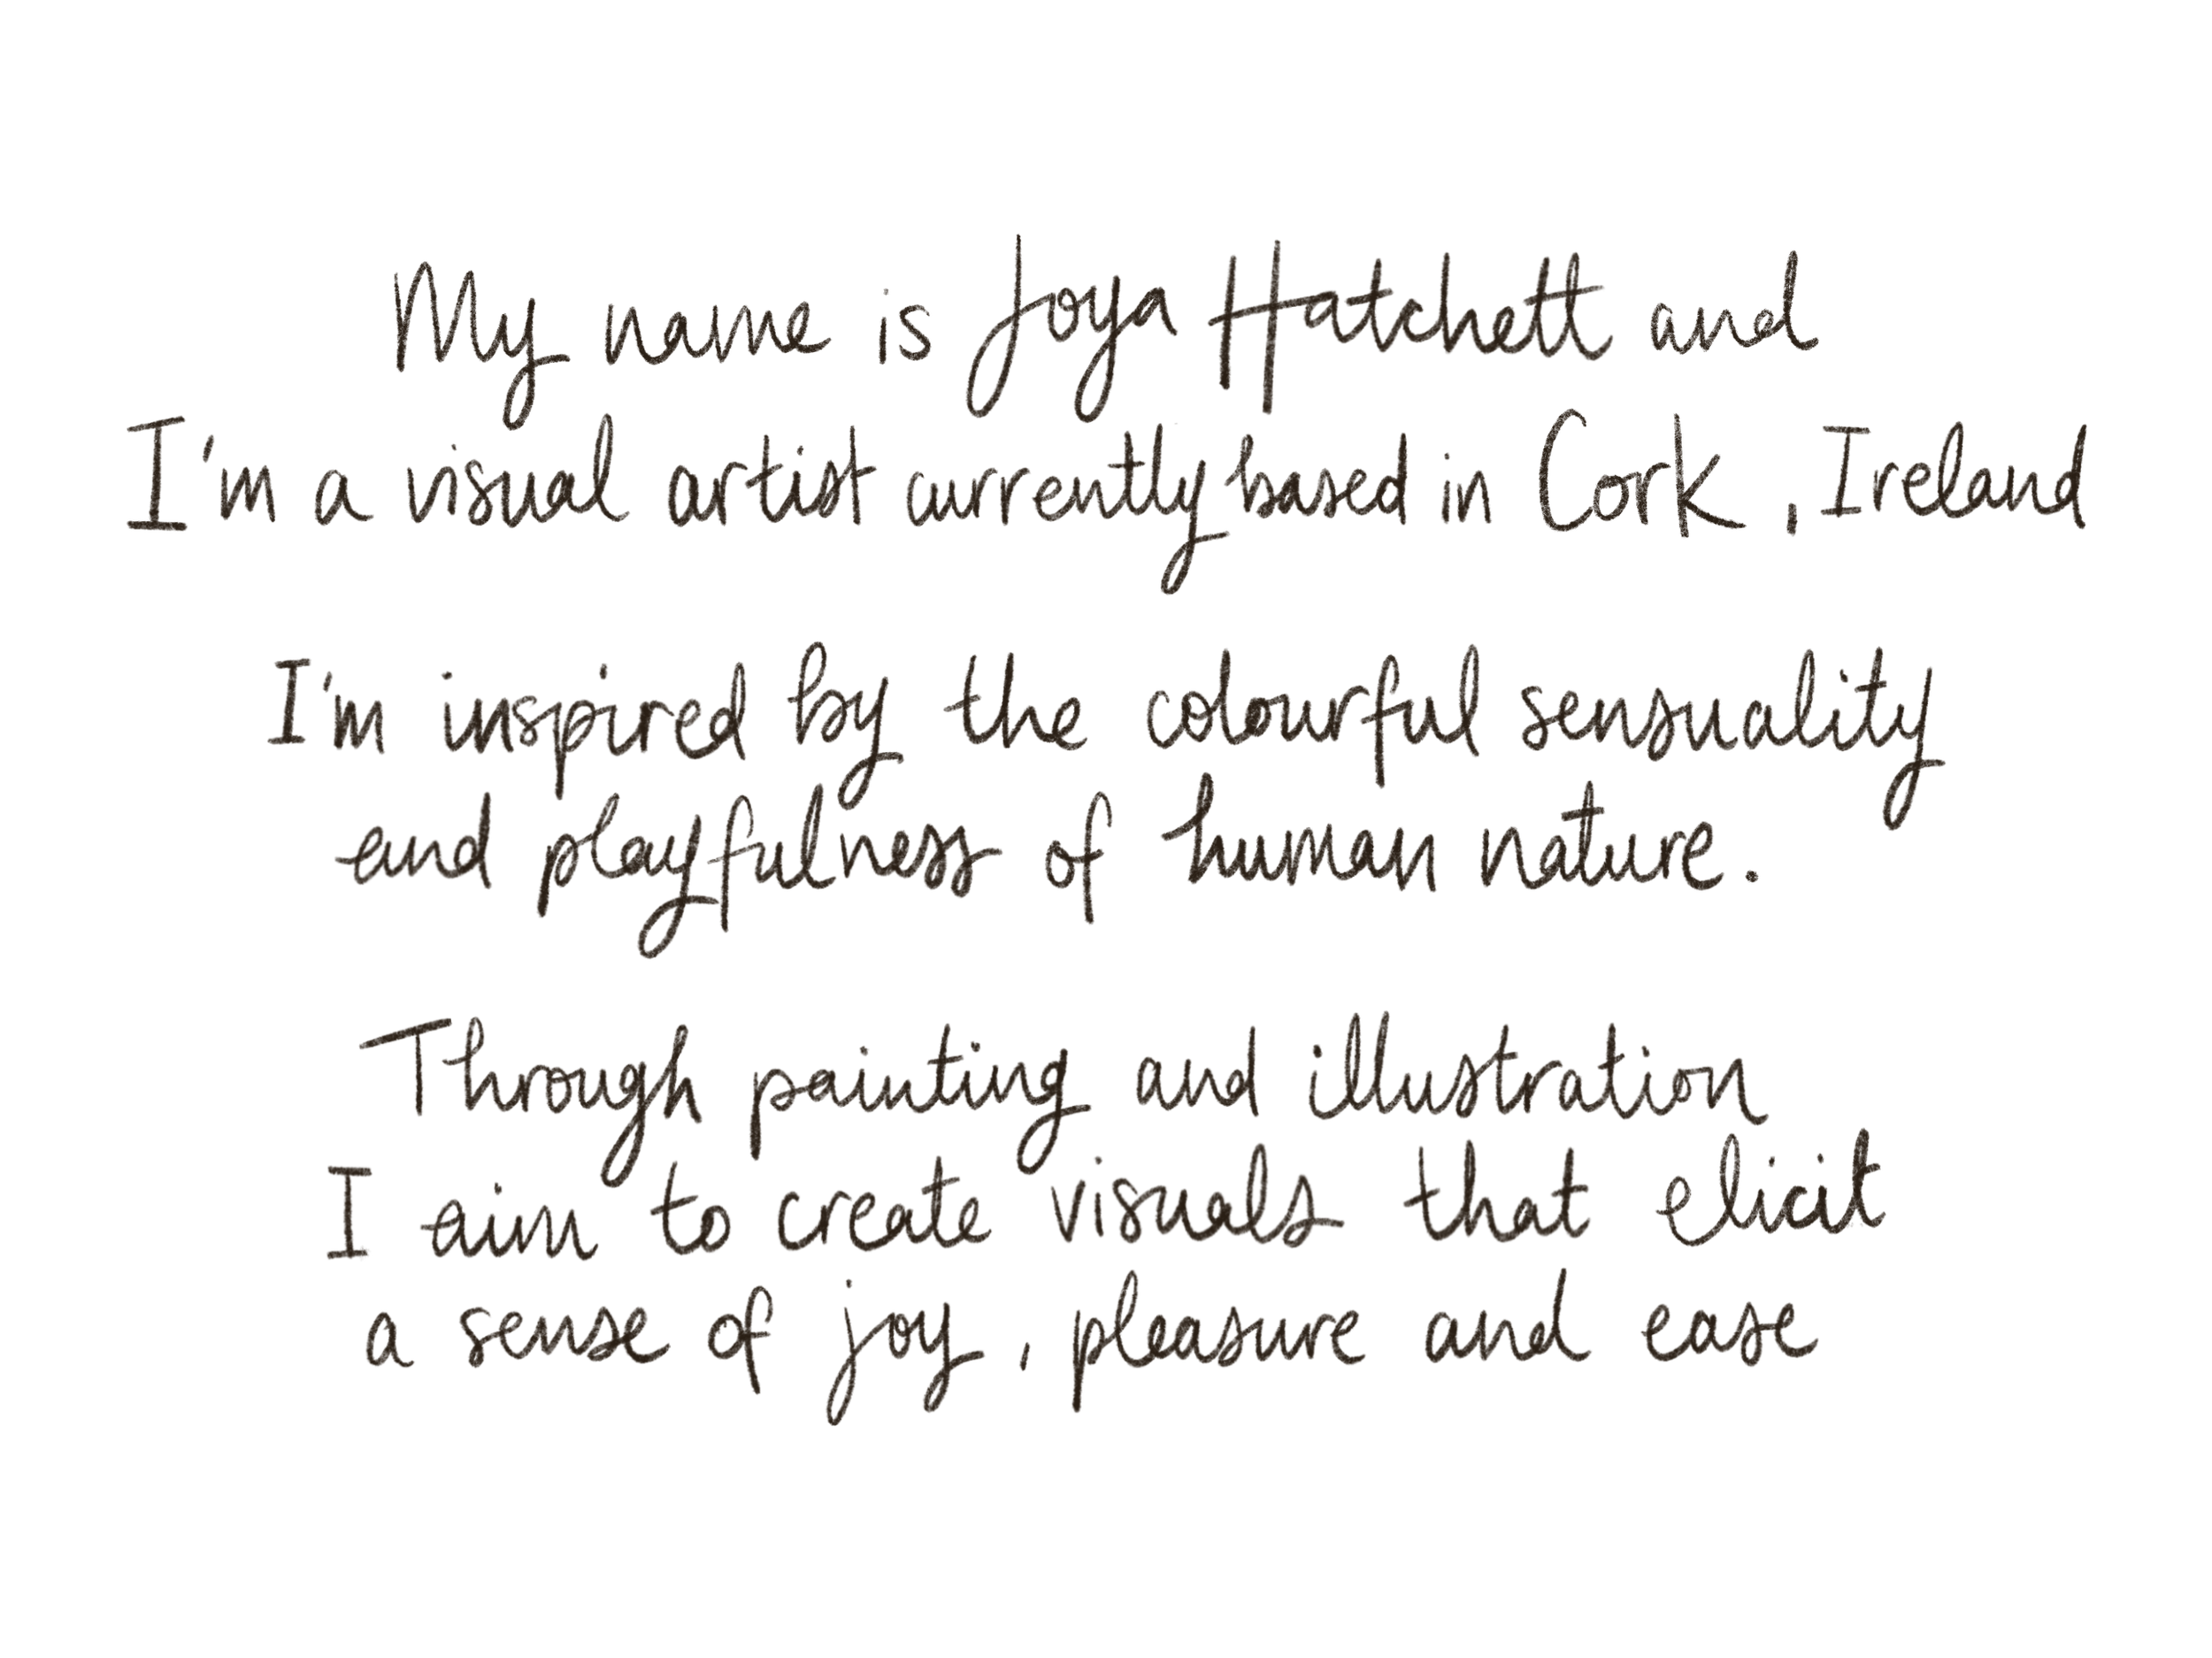 My name is Joya Hatchett and
I'm a visual artist currently based in Cork, Ireland
I'm inspired by the colourful sensuality
and playfulness of human nature.
Through painting and illustration
I aim to create visuals that elicit
a sense of joy, pleasure and ease